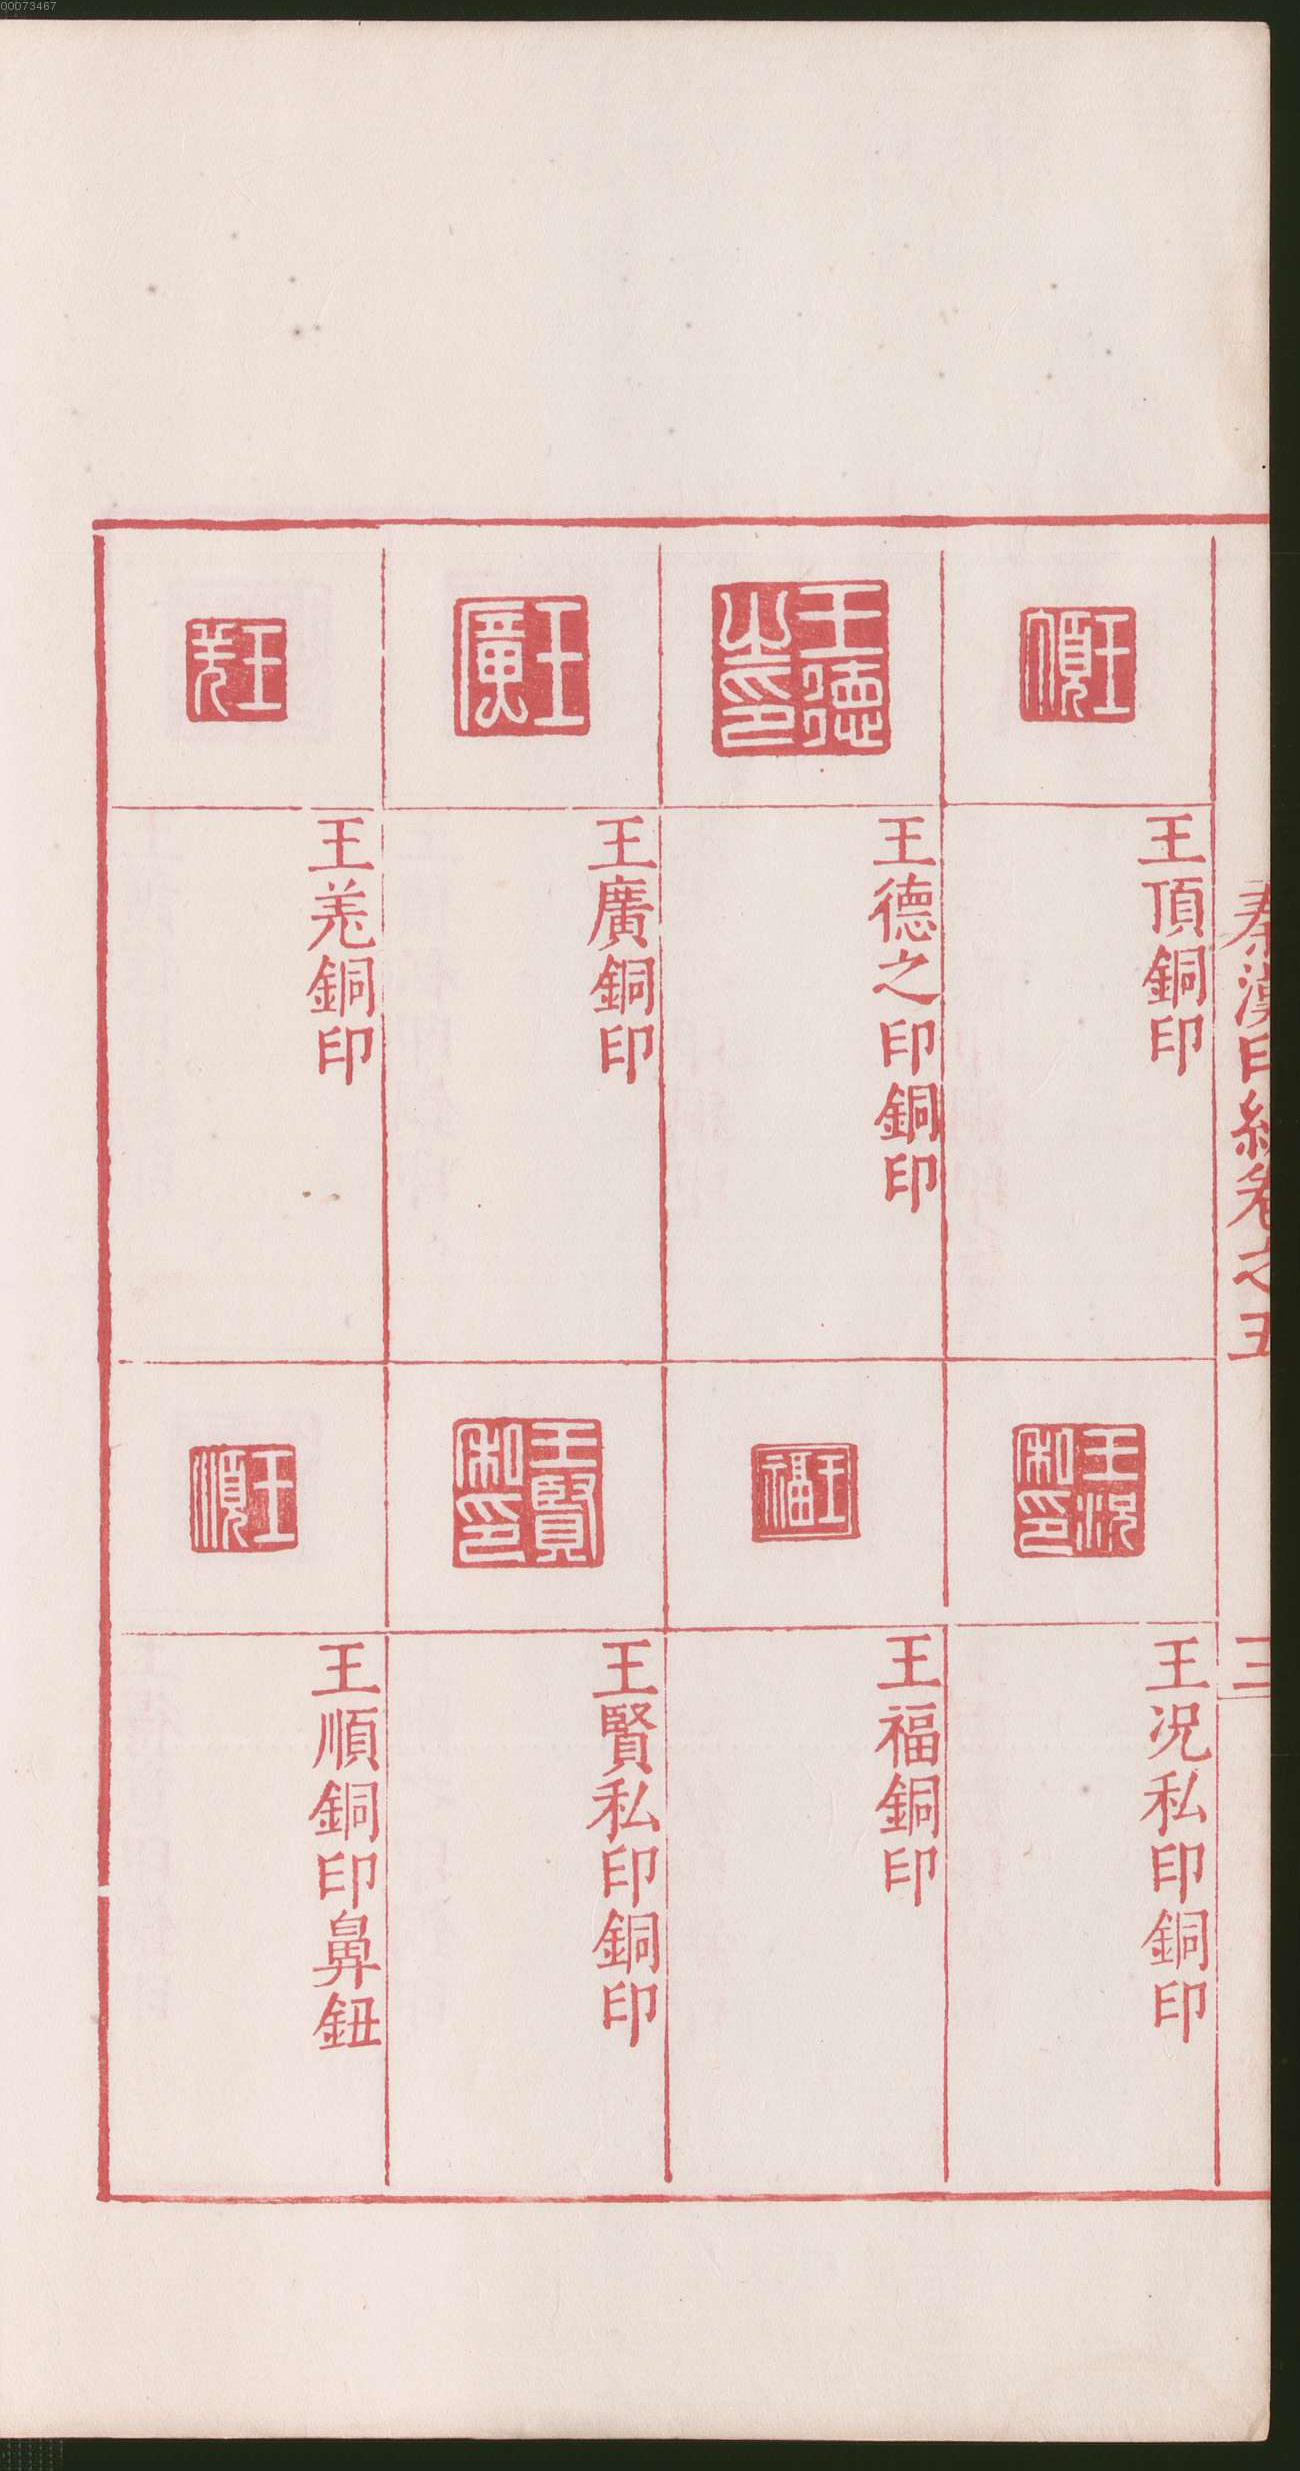 00073467
秦漢印統卷之五
三
王頂
王頂銅印
王德之印
王德之印銅印
王廣
王廣銅印
王羌
王羌銅印
王況私印
王况私印銅印
王福
王福銅印
王賢私印
王賢私印銅印
王順
王順銅印鼻鈕